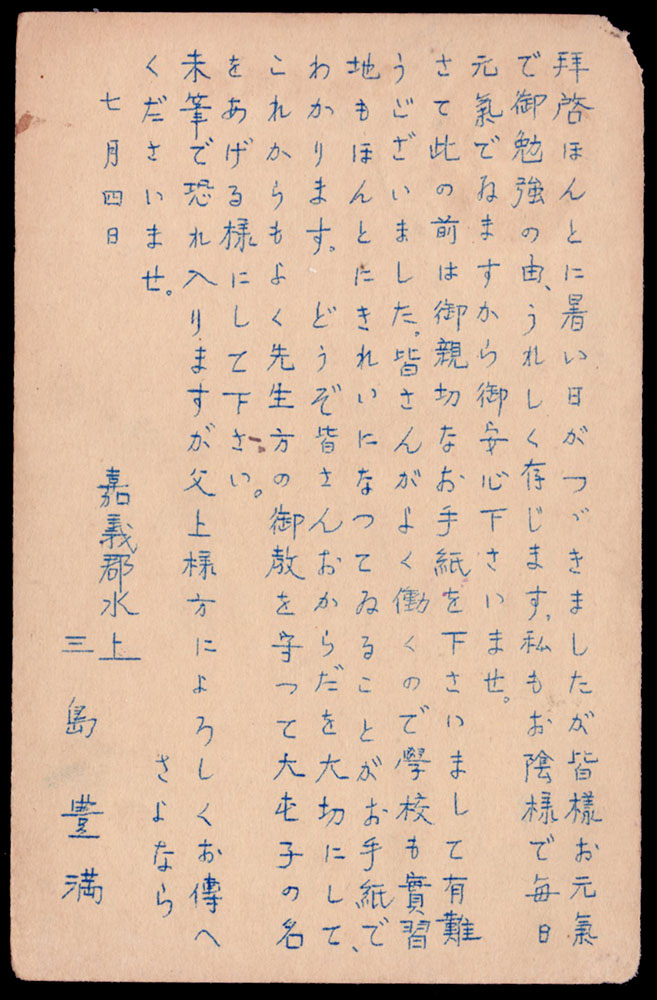 拝啓ほんとに暑い日がつゞきましたが皆様お元氣
で御勉強の由、うれしく存じます。私もお陰様で毎日
元氣でゐますから御安心下さいませ。
さて此の前は御親切なお手紙を下さいまして有難
うございました。皆さんがよく働くので學校も實習
地もほんとにきれいになつてゐることがお手紙で
わかります。どうぞ皆さんおからだを大切にして、
これからもよく先生方の御教を守つて大屯子の名
をあげる様にして下さい。
末筆で恐れ入りますが父上様方によろしくお傳へ
くださいませ。 さよなら
七月四日
嘉義郡水上
三島豊満